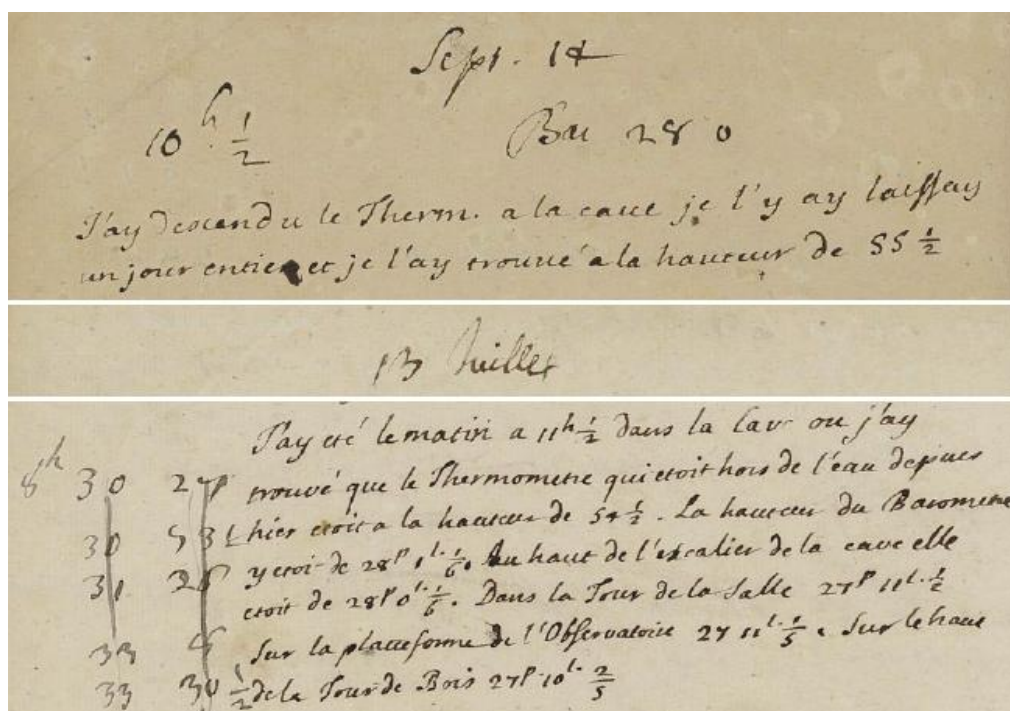 Sept. 14
10 h. 1/2 Bar 28 0
J'ay descendu le Therm. a la cave je l'y ay laissay
un jour entier et je l'ay trouvé a la hauteur de 55 1/2
13 Juillet
J'ay eté le matin a 11h 1/2 dans la Cav ou j'ay
8h 30 27 trouvé que le Thermometre qui etoit hors de l'eau depues
30 53 1/2 hier etoit a la hauteur de 54 1/2. La hauteur du Barometre
31 28 y etoi de 28p 1l. 1/6. Au haut de l'escalier de la cave elle
etoit de 28p 0l. 1/6. Dans la Tour de la Salle 27p 11l. 1/2
33 5 Sur la platteforme de l'Observatoire 27 11l. 1/5. Sur le haut
33 30 1/2 de la Tour de Bois 27p 10l. 2/5